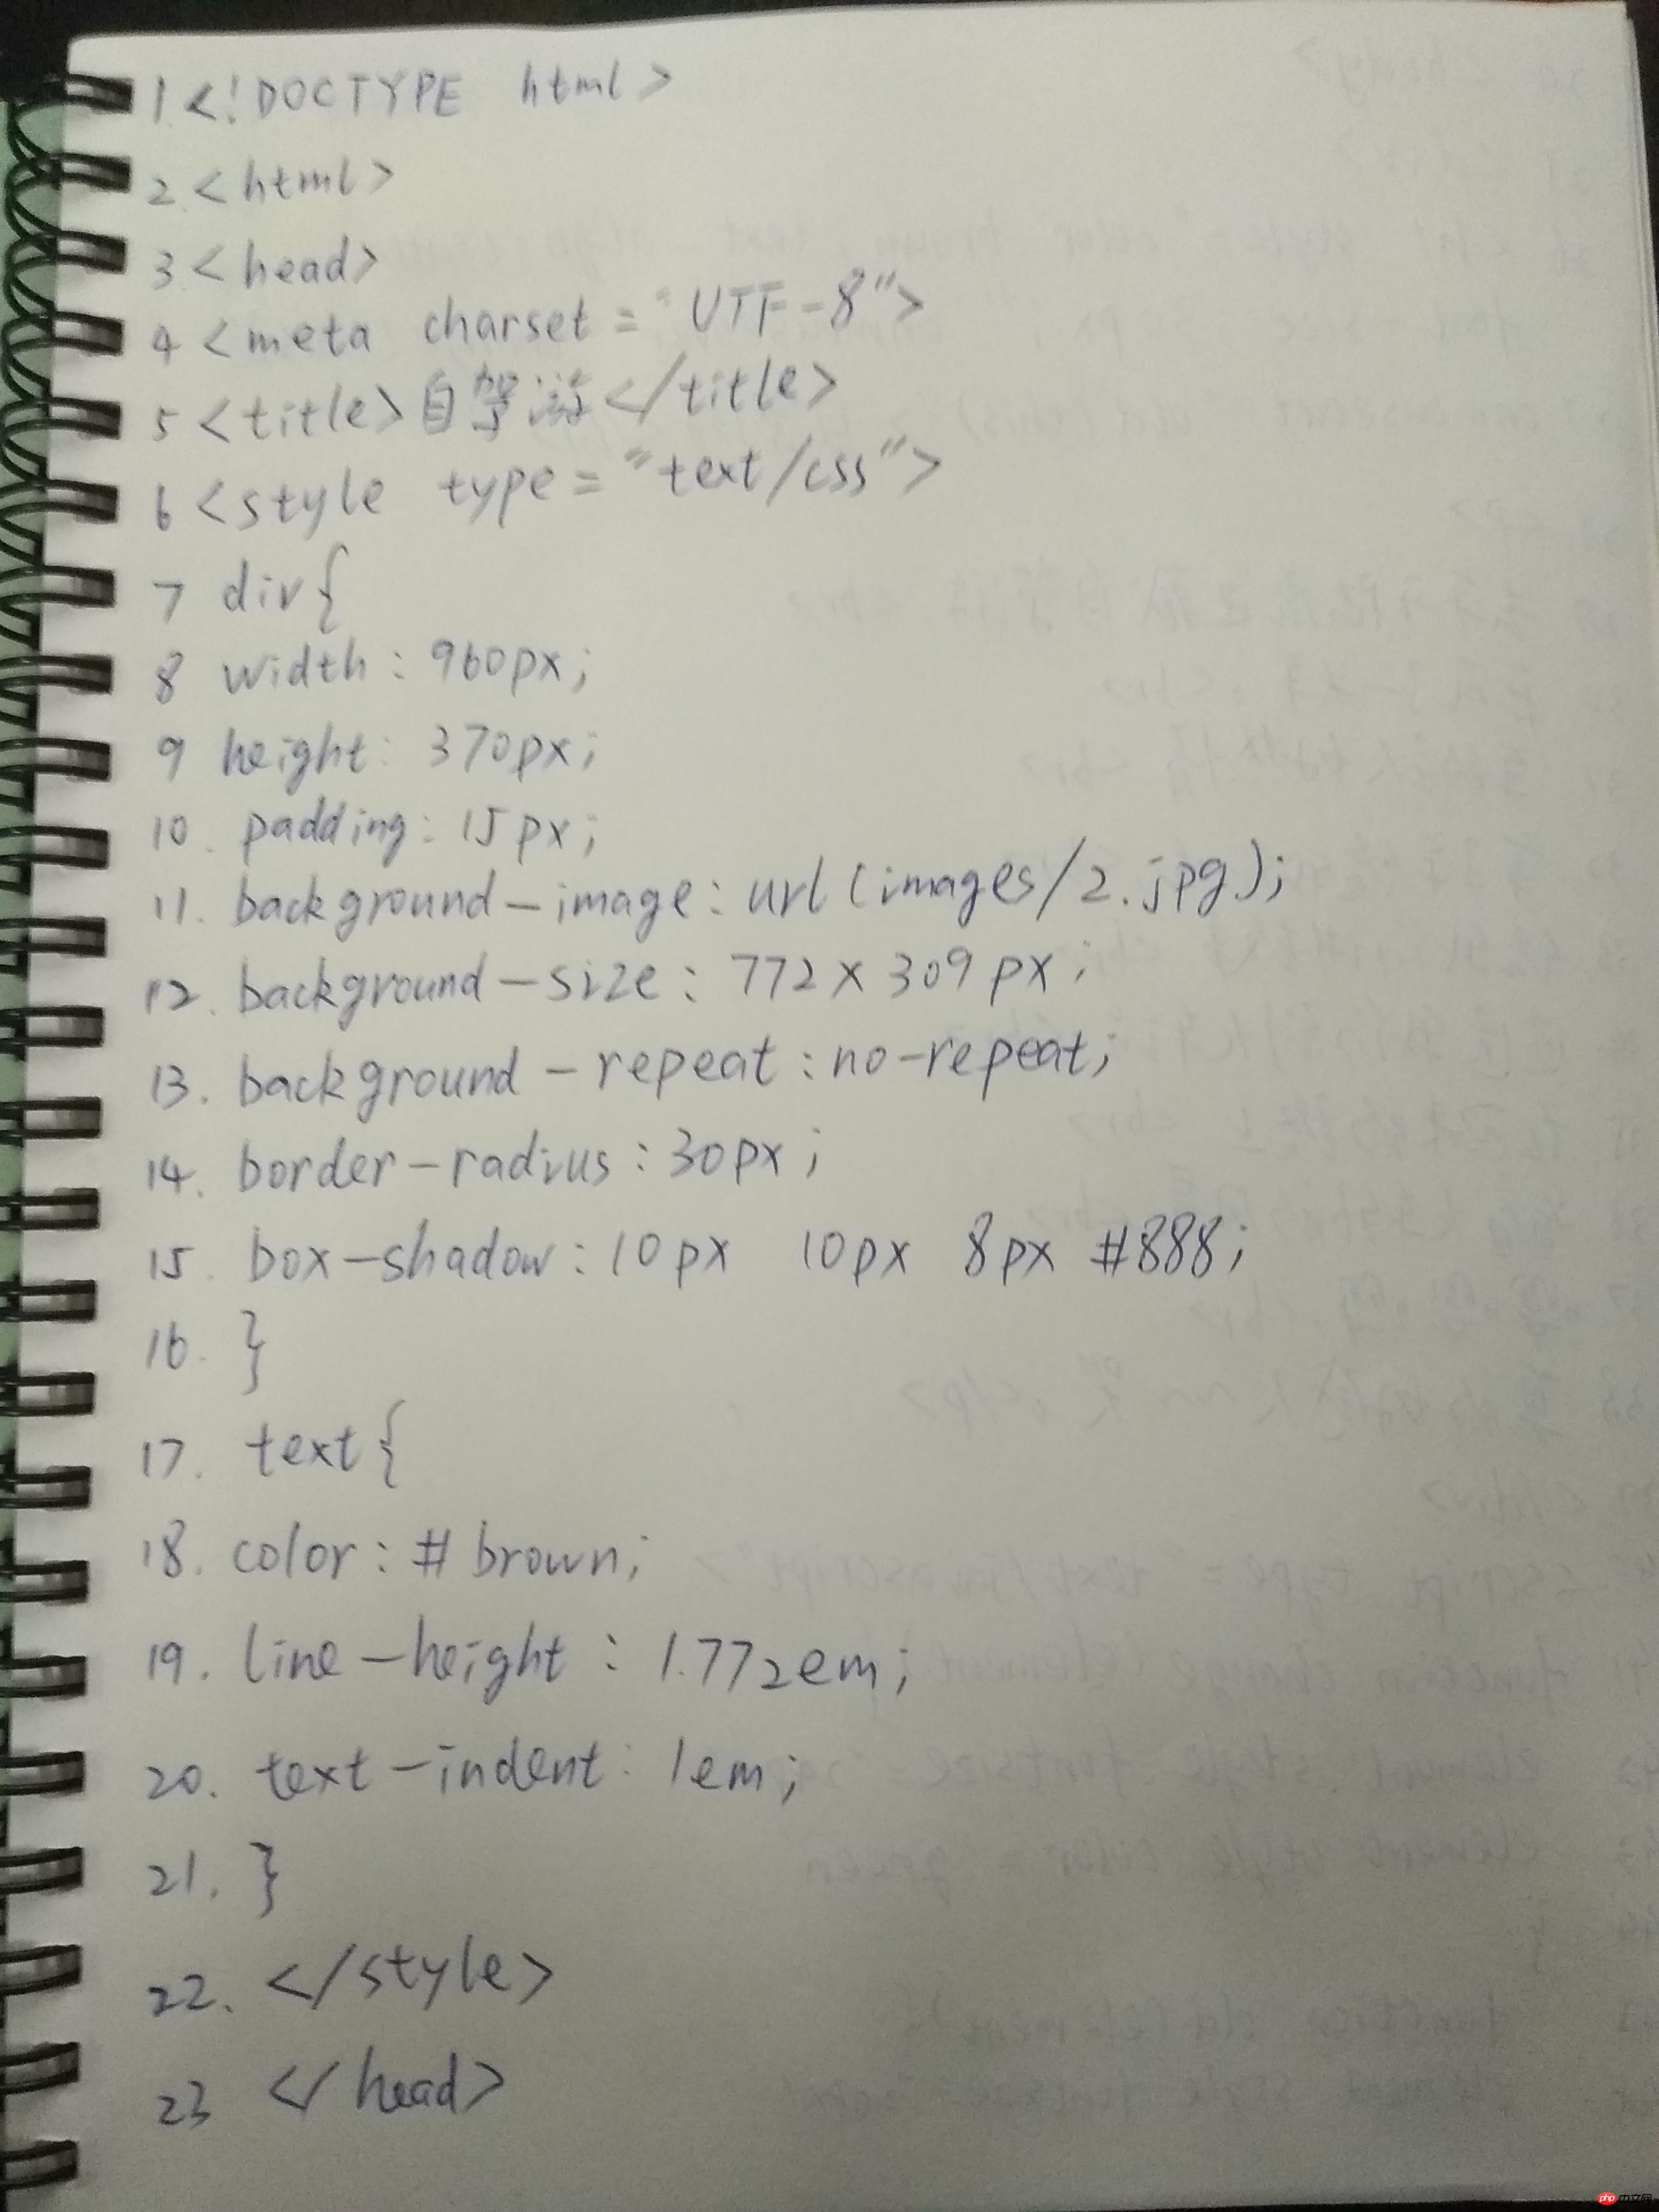 1 <!DOCTYPE html>
2 <html>
3 <head>
4 <meta charset = "UTF-8">
5 <title>自驾游</title>
6 <style type = "text/css">
7 div{
8 width : 960px;
9 height : 370px;
10. padding : 15px;
11. background-image : url (images/2.jpg);
12. background-size : 772 x 309 px;
13. background-repeat : no-repeat;
14. border-radius : 30px;
15. box-shadow : 10px 10px 8px #888;
16. }
17. text{
18. color : # brown;
19. line-height : 1.772em;
20. text-indent : 1em;
21. }
22. </style>
23 </head>
php中文网